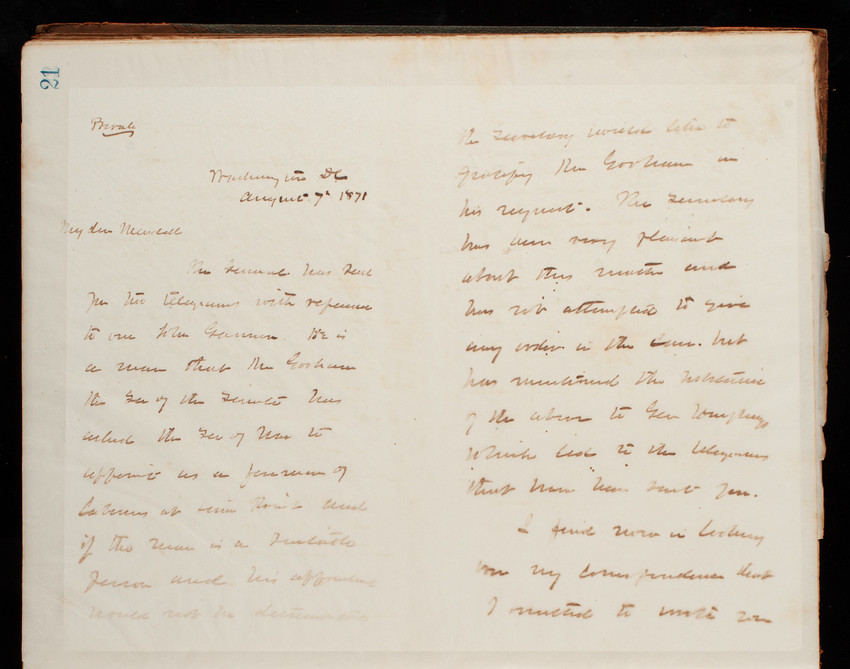 21
Private
Washington DC
August 7" 1871
My dear Mendell
The General has sent
you two telegrams with reference
to one John Gannon. He is
a man that Mr Gorham
the Sec of the Senate has
asked the Sec of War to
appoint as a foreman of
laborers at Lime Point and
if the man is a suitable
person and his appointment
would not be detrimental
the Secretary would like to
gratify Mr Gorham in
his request. The Secretary
has been very pleasant
about this matter and
has not attempted to give
any order in the case. but
has mentioned the substance
of the above to Gen Humphreys
which led to the telegrams
that have been sent you.
I find now in looking
over my correspondence that
I omitted to write you